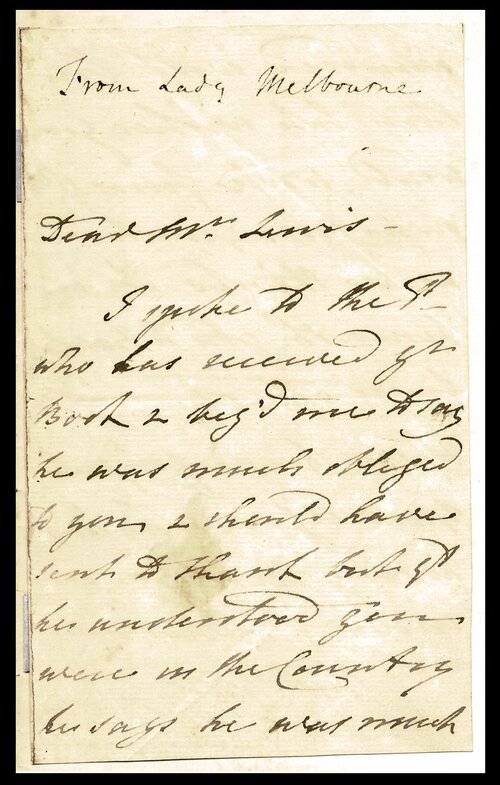 From Lady Melbourne
Dear Mr. Lewis -
I spoke to the P-
who has received yr
Book & beg'd me to say
he was much obliged
to you & should have
sent to thank but yt
he understood you
were in the Country
he says he was much